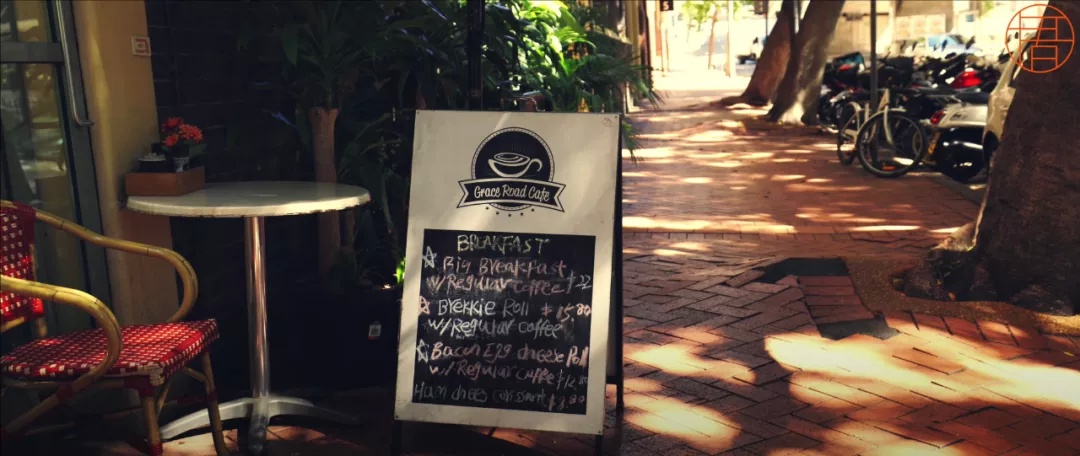 Grace Road Cafe
BREAKFAST
Big Breakfast
w/Regular coffee $22
Brekkie Roll $15.80
w/Regular coffee
Bacon Egg cheese Roll
w/Regular coffee $12.80
Ham chees croissant $8.80